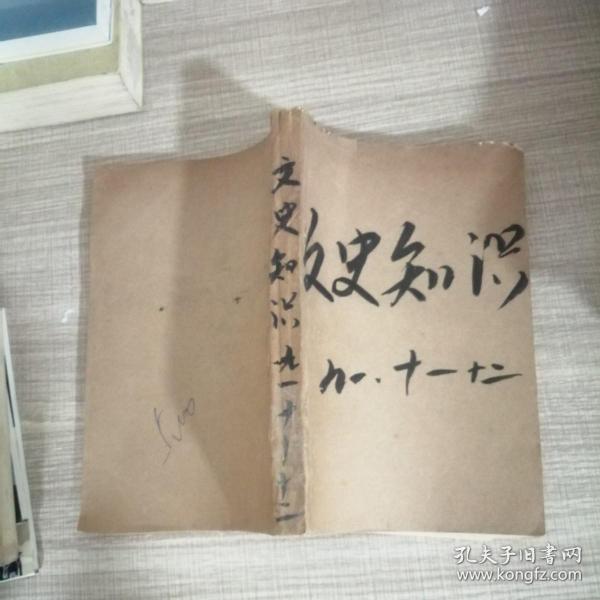 文史知识
九一.十一十二
文史知识九一十一十二
5.00
孔夫子旧书网
www.kongfz.com